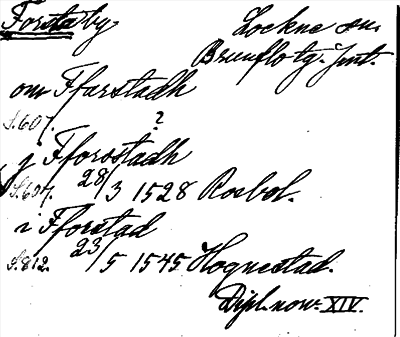 Forstaby Lockne sn.
Brunflo tg. Jmt.
om Ffarstadh
S.607. ?
j Fforsstadh
S.607. 28/3 1528 Rosbol.
i Fforstad
S.812. 23/5 1545 Hognestad.
Dipl. norv. XIV.